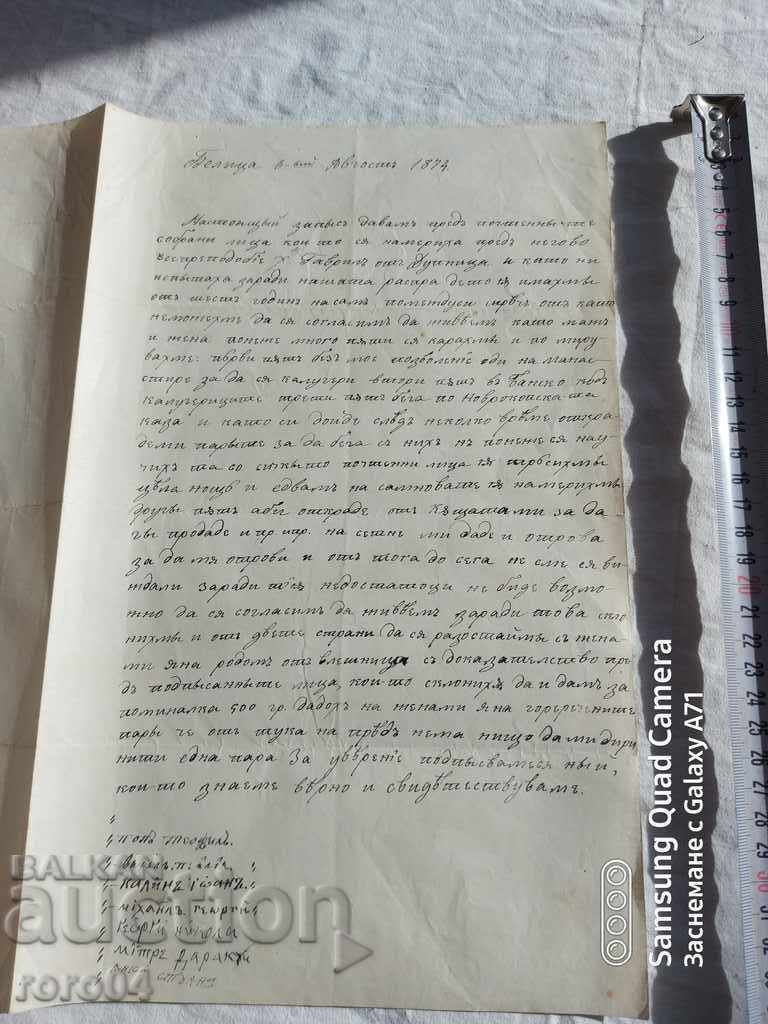 Белица 6-ий Августъ 1874
Настоящый записъ давамъ предъ почтенны-те
собрани лица кои то ся намериха предъ негово
Всепреподобіе Х. Гаврилъ отъ Дупница и като ни
испытаха заради нашата распра дето я имахмы
отъ шестъ годинъ насамъ помежду си отъ като
неможехме да ся согласимъ да живѣемъ като мѫжъ
и жена понеже много пѫти ся карахмы и по миру
вахме: първи пѫтъ безъ мое позволеніе оди на манас
тире за да ся калугери втори пѫтъ въ Банско кѫдъ
калугерицыте трети пѫтъ бѣга по Неврокопска-та
каза и като си дойде слѣдъ неколко врѣме открад
деми парыте за да бѣга съ нихъ нъ понеже ся нау
чихъ та со сичкыто почтенни лица я тѫрсихмы
цѣла нощь и едвамъ на самнование я намерихмы
другы пѫтъ аби открадe отъ кѫщата ми за да
гы продаде и пр. пр. на сетне ми даде и отрова
за да мя отрови и отъ тога до сега не сме ся ви
ждали заради тіѣ недостатоци не биде возмо
жно да ся согласимъ да живѣемъ заради това скло
нихмы и отъ двете страни да ся разостаймы съ жена
ми Яна родомъ отъ Елешница съ доказателство пре
дъ подписанныте лица, кои то склонихѫ да и дамъ за
поминалка 500 гр. Дадохъ на женами Яна горереченныте
пары че отъ тука на прѣдъ нема нищо да ми дири
нити една пара За увѣреніе подписвамеся ный,
кои то знаеме вѣрно и свидѣтелствувамъ.
„
„ попъ Теофилъ.
„
„ Калинъ Іоанъ „
„ Міхаилъ Георгіи „
„ Кеорги Никола
„ Мітре Даракчи „
„ Стѣанъ
BALKAN
auction
roro04
Samsung Quad Camera
Заснемане с Galaxy A71
3 4 5 6 7 8 9 10 11 12 13 14 15 16 17 18 19 20 21 22 23 24 25 26 27 28 29 30 31 32 33